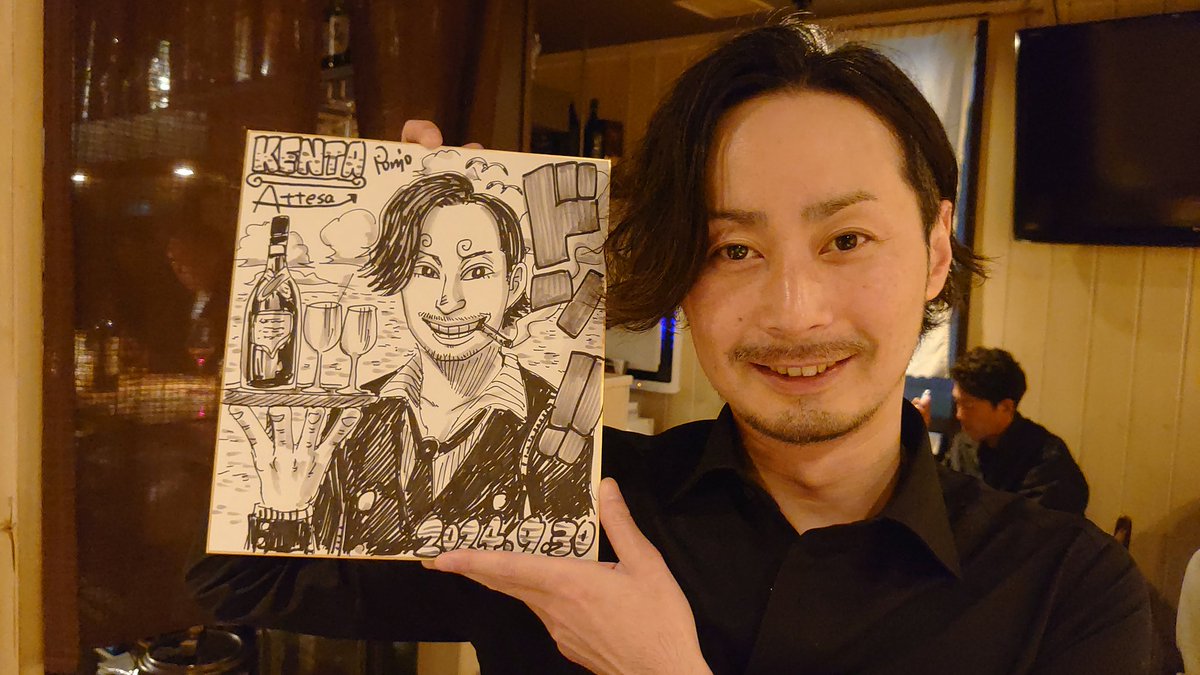 KENTA
Ponjo
Attesa
ドン!!
2024.9.30